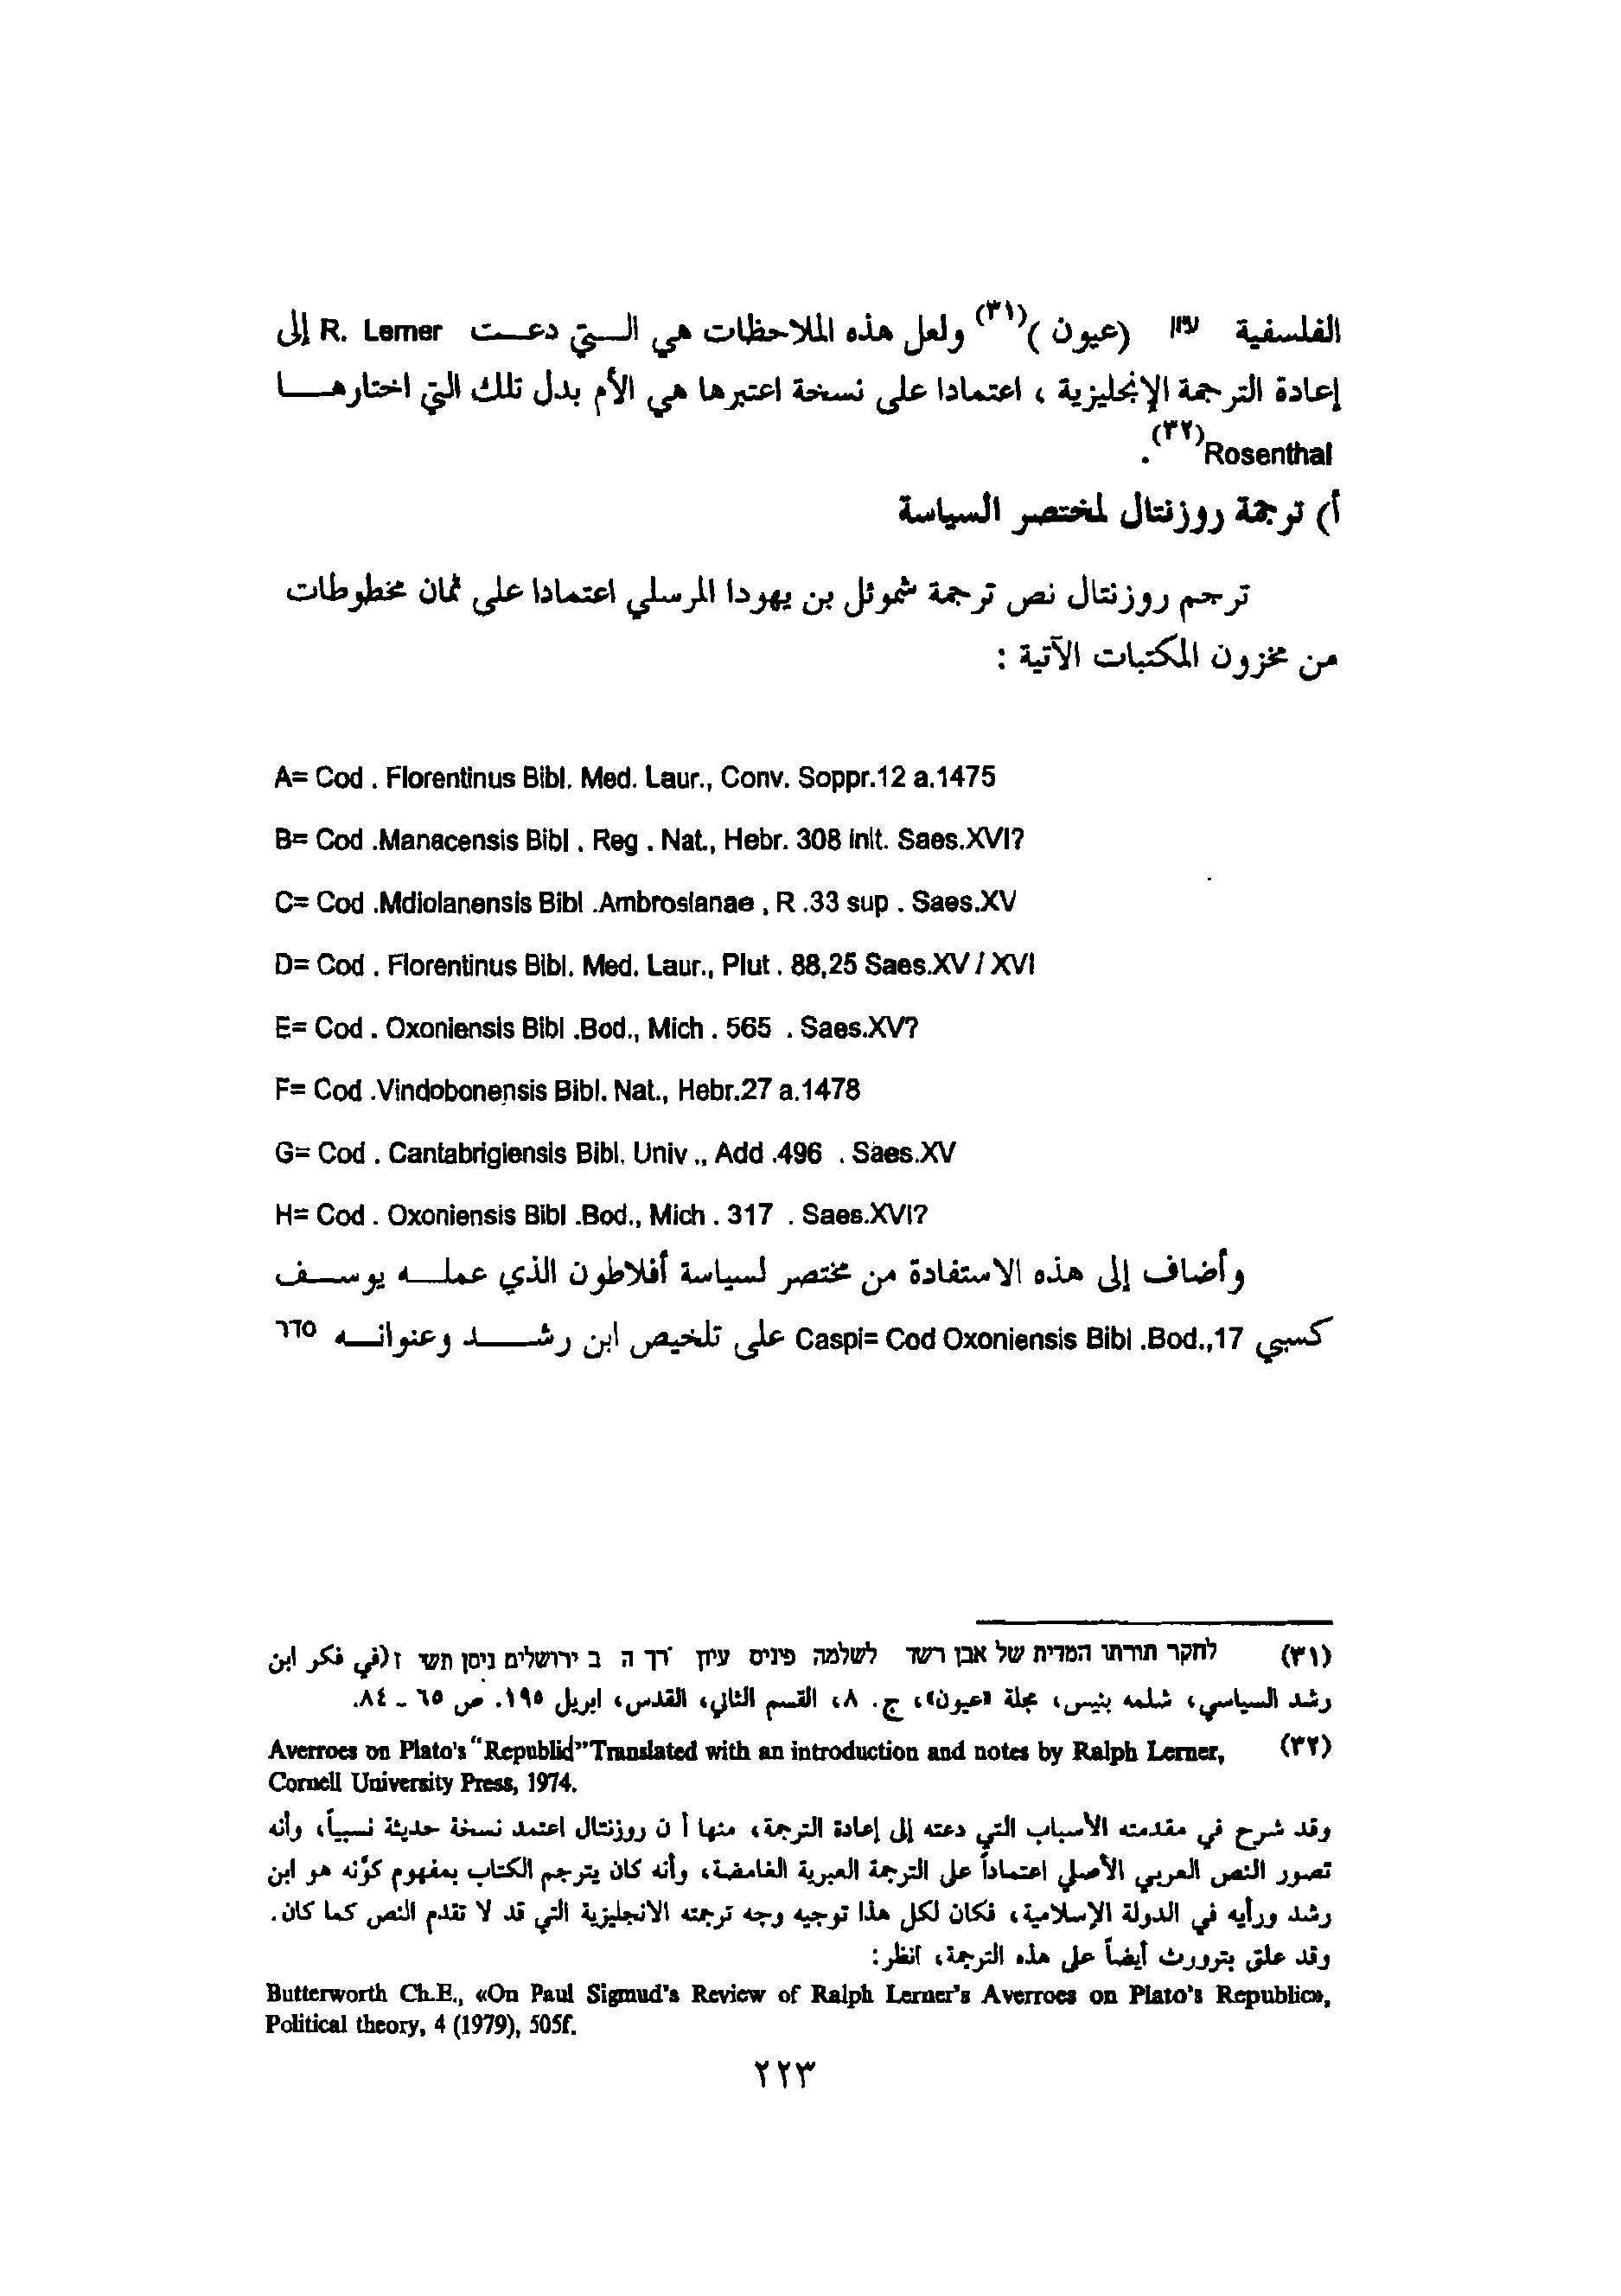 الفلسفية עיון (عيون )(٣١) ولعل هذه الملاحظات هي التي دعت R. Lerner إلى
إعادة الترجمة الإنجليزية ، اعتمادا على نسخة اعتبرها هي الأم بدل تلك التي اختارها
Rosenthal(٣٢).
أ) ترجمة روزنتال لمختصر السياسة
ترجم روزنتال نص ترجمة شموئل بن يهودا المرسلي اعتمادا على ثمان مخطوطات
من مخزون المكتبات الآتية :
A= Cod . Florentinus Bibl. Med. Laur., Conv. Soppr.12 a.1475
B= Cod .Manacensis Bibl . Reg . Nat., Hebr. 308 init. Saes.XVI?
C= Cod .Mdiolanensis Bibl .Ambrosianae , R .33 sup . Saes.XV
D= Cod . Florentinus Bibl. Med. Laur., Plut . 88,25 Saes.XV / XVI
E= Cod . Oxoniensis Bibl .Bod., Mich . 565 . Saes.XV?
F= Cod .Vindobonensis Bibl. Nat., Hebr.27 a.1478
G= Cod . Cantabrigiensis Bibl. Univ ., Add .496 . Saes.XV
H= Cod . Oxoniensis Bibl .Bod., Mich . 317 . Saes.XVI?
وأضاف إلى هذه الاستفادة من مختصر لسياسة أفلاطون الذي عمله يوسف
كسبي Caspi= Cod Oxoniensis Bibl .Bod.,17 على تلخيص ابن رشد وعنوانه
(٣١) לחקר תורתו המדית של אבן רשד לשלמה פינים עיון ה ב ירושלים ניסן תשי ז (في فكر ابن
رشد السياسي، شلمه بنيس، مجلة «عيون»، ج. ٨، القسم الثاني، القدس، ابريل ١٩٥. ص ٦٥ ـ ٨٤.
(٣٢) Averroes on Plato's "Republid" Translated with an introduction and notes by Ralph Lerner,
Cornell University Press, 1974.
وقد شرح في مقدمته الأسباب التي دعته إلى إعادة الترجمة، منها أ ن روزنتال اعتمد نسخة حديثة نسبياً، وأنه
تصور النص العربي الأصلي اعتماداً على الترجمة العبرية الغامضة، وأنه كان يترجم الكتاب بمفهوم كوْنه هو ابن
رشد ورأيه في الدولة الإسلامية، فكان لكل هذا توجيه وجه ترجمته الانجليزية التي قد لا تقدم النص كما كان.
وقد علق بترورث أيضاً على هذه الترجمة، انظر:
Butterworth Ch.E., «On Paul Sigmud's Review of Ralph Lerner's Averroes on Plato's Republic»,
Political theory, 4 (1979), 505f.
٢٢٣